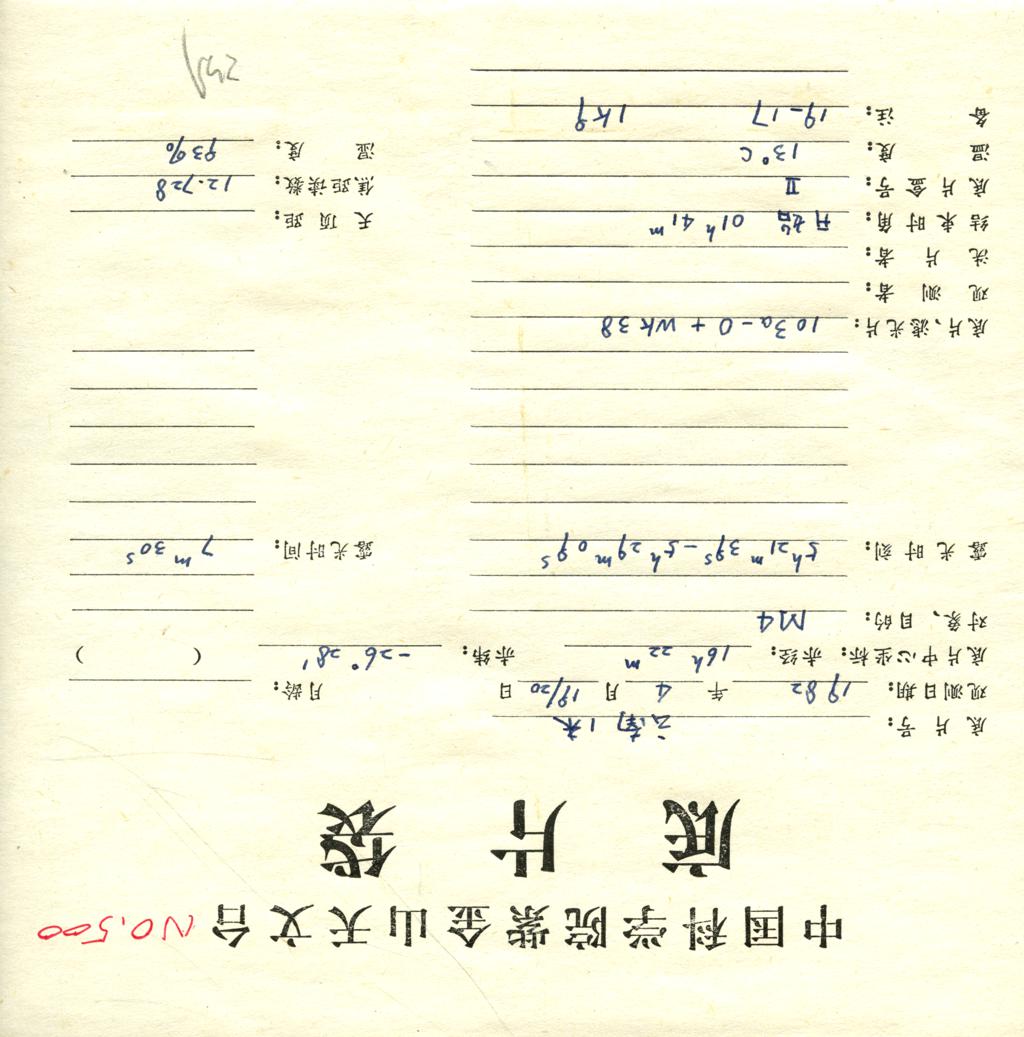 中国科学院紫金山天文台 NO.500
底片袋
底片号: 云南1米
观测日期: 1982年4月19/20日 月龄:
底片中心坐标: 赤经: 16h 22m 赤纬: -26° 28′ ( )
对象、目的: M4
露光时刻: 5h21m39s-5h29m09s 露光时间: 7m 30s
底片、滤光片: 103a-O + WK38
观测者:
洗片者:
结束时角: 开始 01h 41m 天顶距:
底片盒号: II 焦距读数: 12.728
温度: 13°C 湿度: 93%
备注: 19-17 1K9